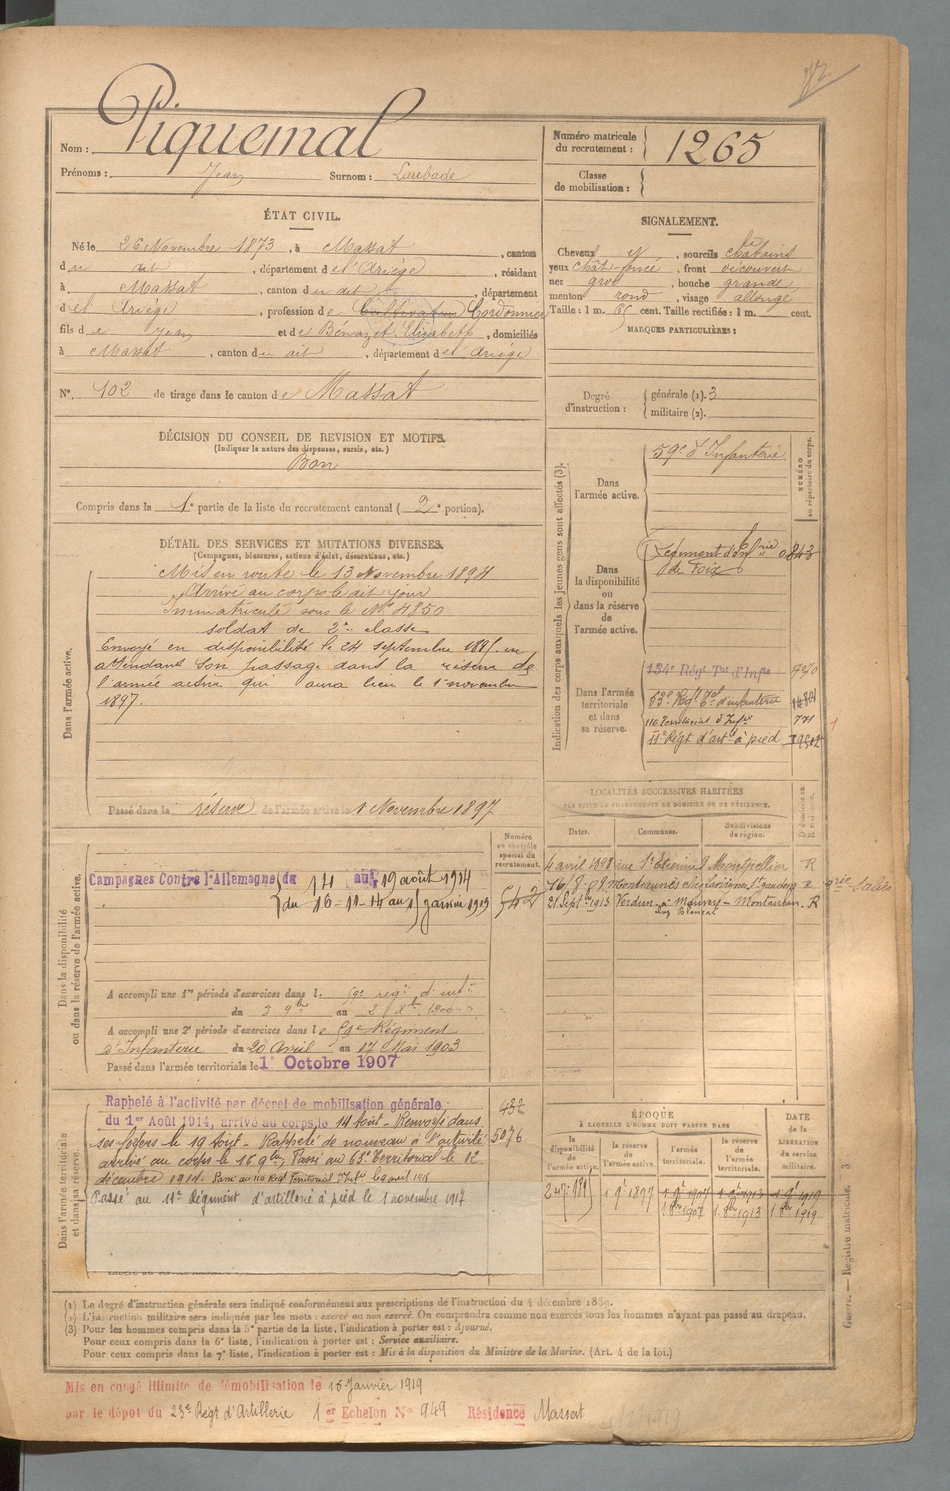 72
Nom : Piquemal
Prénoms : Jean Surnom : Loubade
Numéro matricule du recrutement : 1265
Classe de mobilisation :
ÉTAT CIVIL.
Né le 26 Novembre 1873, à Massat, canton
du dit, département de l'Ariège, résidant
à Massat, canton du dit, département
de l'Ariège, profession de Cultivateur Cordonnier
fils de Jean et de Bénazet Elizabeth, domiciliés
à Massat, canton du dit, département de l'Ariège
N°. 102 de tirage dans le canton de Massat
SIGNALEMENT.
Cheveux et, sourcils châtains
yeux chât. foncé, front découvert
nez gros, bouche grande
menton rond, visage allongé
Taille : 1 m. cent. Taille rectifiée : 1 m. cent.
MARQUES PARTICULIÈRES :
Degré d'instruction : générale (1). 3
militaire (2).
DÉCISION DU CONSEIL DE REVISION ET MOTIFS.
(Indiquer la nature des dispenses, sursis, etc.)
Bon
Compris dans la 1e partie de la liste du recrutement cantonal (2e portion).
DÉTAIL DES SERVICES ET MUTATIONS DIVERSES.
(Campagnes, blessures, actions d'éclat, décorations, etc.)
Dans l'armée active.
Mis en route le 13 Novembre 1894
Arrivé au corps le dit jour
Immatriculé sous le No 4850
soldat de 2e classe
Envoyé en disponibilité le 24 septembre 1895 en
attendant son passage dans la réserve de
l'armée active qui aura lieu le 1 novembre
1897.
Passé dans la réserve de l'armée active le 1 Novembre 1897
Indication des corps auxquels les jeunes gens sont affectés (3).
NUMÉRO au répertoire du corps.
Dans l'armée active.
59e d'Infanterie
Dans la disponibilité ou dans la réserve de l'armée active.
Régiment d'Infrie 0843
de Foix
Dans l'armée territoriale et dans sa réserve.
134e Régt Tal d'Infie
110 Territorial d'Infie 741
11e Régt d'art. à pied
LOCALITÉS SUCCESSIVES HABITÉES
PAR SUITE DE CHANGEMENTS DE DOMICILE OU DE RÉSIDENCE.
Dates. Communes. Subdivisions de région.
4 avril 1898 rue St Etienne 9 Montpellier R
21 Septbre 1913 Verdun Montauban R
Dans la disponibilité ou dans la réserve de l'armée active.
Numéro au contrôle spécial du recrutement.
Campagnes Contre l'Allemagne du 14 au 19 août 1914
du 16-11-14 au janvier 1919
542
A accompli une 1re période d'exercices dans l. 59e regt d'infie
A accompli une 2e période d'exercices dans le 59e Régiment
d'Infanterie du 20 Avril au 17 Mai 1903
Passé dans l'armée territoriale le 1er Octobre 1907
Dans l'armée territoriale et dans sa réserve.
Rappelé à l'activité par décret de mobilisation générale
du 1er Août 1914, arrivé au corps le 14 Aout - Renvoyé dans
ses foyers le 19 Aout - Rappelé de nouveau à l'activité
arrivé au corps le 16 9bre. Passé au 63e Territorial le 12
décembre 1914. Passé au 110 Régt Territorial d'Infie le 9 avril 1916
Passé au 11e Régiment d'artillerie à pied le 1 novembre 1917
432
5076
ÉPOQUE
À LAQUELLE L'HOMME DOIT PASSER DANS
la disponibilité de l'armée active. la réserve de l'armée active. l'armée territoriale. la réserve de l'armée territoriale.
DATE de la LIBÉRATION du service militaire.
1 9e 1897 1 9e 1907 1 9e 1913 1 9e 1919
1 8bre 1907 1 8bre 1913 1 8bre 1919
(1) Le degré d'instruction générale sera indiqué conformément aux prescriptions de l'instruction du 4 décembre 1889.
(2) L'instruction militaire sera indiquée par les mots : exercé ou non exercé. On comprendra comme non exercés tous les hommes n'ayant pas passé au drapeau.
(3) Pour les hommes compris dans la 5e partie de la liste, l'indication à porter est : Ajourné.
Pour ceux compris dans la 6e liste, l'indication à porter est : Service auxiliaire.
Pour ceux compris dans la 7e liste, l'indication à porter est : Mis à la disposition du Ministre de la Marine. (Art. 4 de la loi.)
Guerre. — Registre matricule. 3
Mis en congé illimité de démobilisation le 15 Janvier 1919
par le dépôt du 23e Régt d'Artillerie 1er Echelon N° 949 Résidence Massat